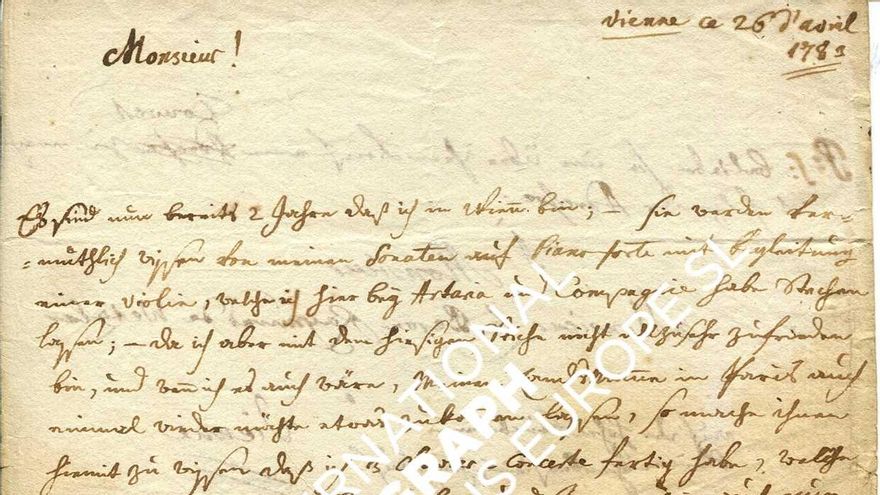 Vienne ce 26 d'avril
1783
Monsieur!
P: S:
Es sind nun bereits 2 Jahre daß ich in Wienn bin; – sie werden ver=
=muthlich wissen von meinen Sonaten auf Piano forte mit begleitung
einer Violin, welche ich hier bey Artaria und Compagnie habe stechen
lassen; – da ich aber mit dem hiesigen Stiche nicht allzusehr zufrieden
bin, und wenn ich es auch wäre, Meinen in Paris auch
einmal wieder möchte etwas zukommen lassen, so mache ihnen
hiemit zu wissen daß ich 3 Clavier-Concerte fertig habe, welche
INTERNATIONAL
AUTOGRAPH
EUROPE SL